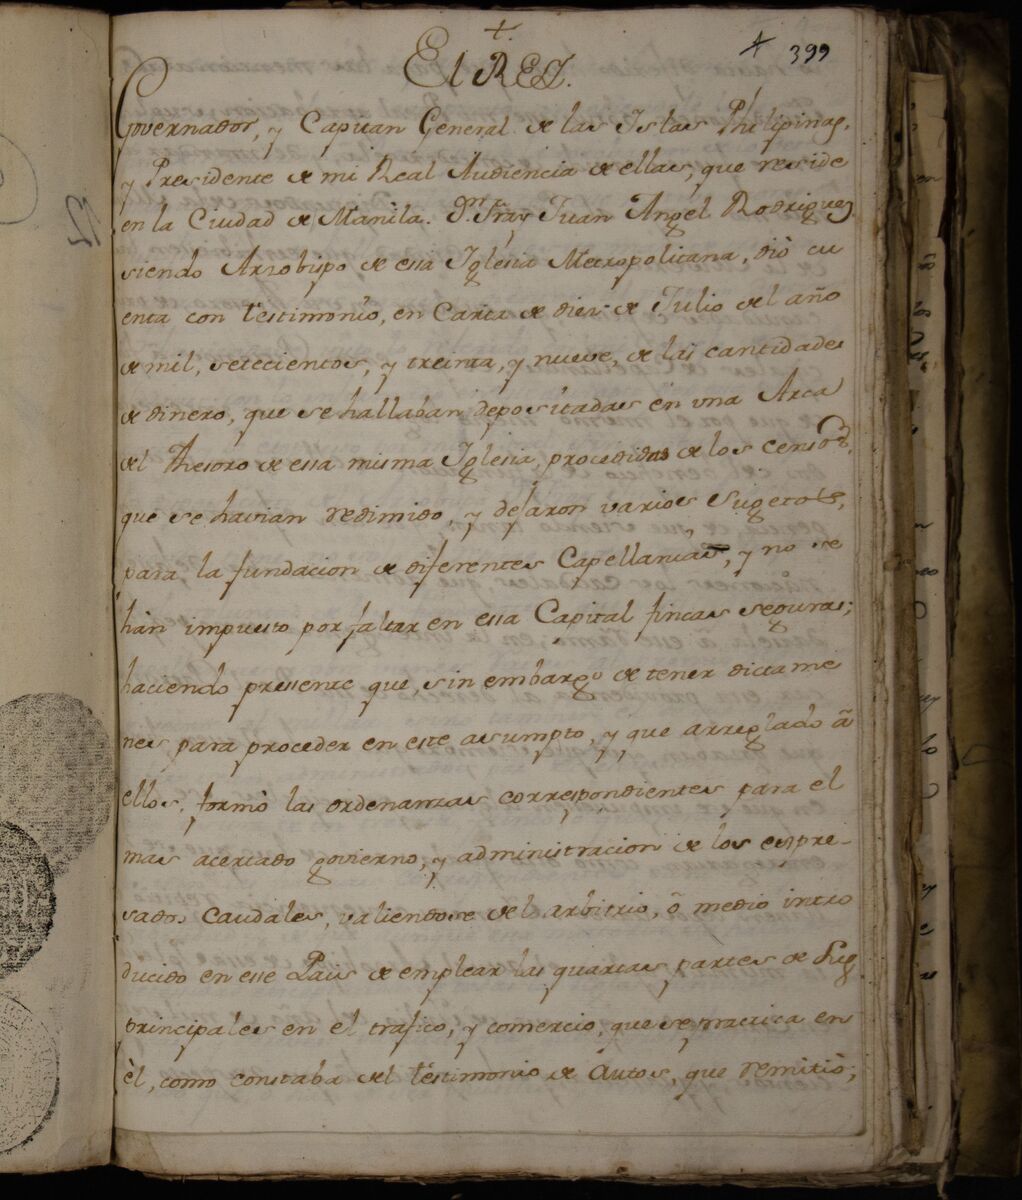 + 399
El REY.
Governador, y Capitan General de las Islas Philipinas,
y Presidente de mi Real Audiencia de ellas, que reside
en la Ciudad de Manila. Dn. Fray Juan Angel Rodriguez
siendo Arzobispo de essa Iglesia Metropolitana, diò cu
enta con testimonio, en Carta de diez de Julio del año
de mil, setecientos, y treinta, y nueve, de las cantidades
de dinero, que se hallaban depositadas en una Arca
del Thesoro de essa misma Iglesia, procedidas de los censos,
que se havian redimido, y dejaron varios Sugetos,
para la fundacion de diferentes Capellanias, y no se
hàn impuesto por faltar en essa Capital fincas seguras;
haciendo presente que, sin embargo de tener dictame
nes para proceder en este asumpto, y que arreglado à
ellos, formò las ordenanzas correspondientes para el
mas acertado govierno, y administracion de los espre-
sados Caudales, valiendose del arbitrio, ò medio intro
ducido en esse Pais de emplear las quartas partes de sus
principales en el trafico, y comercio, que se practica en
èl, como constaba del testimonio de Autos, que remitiò;